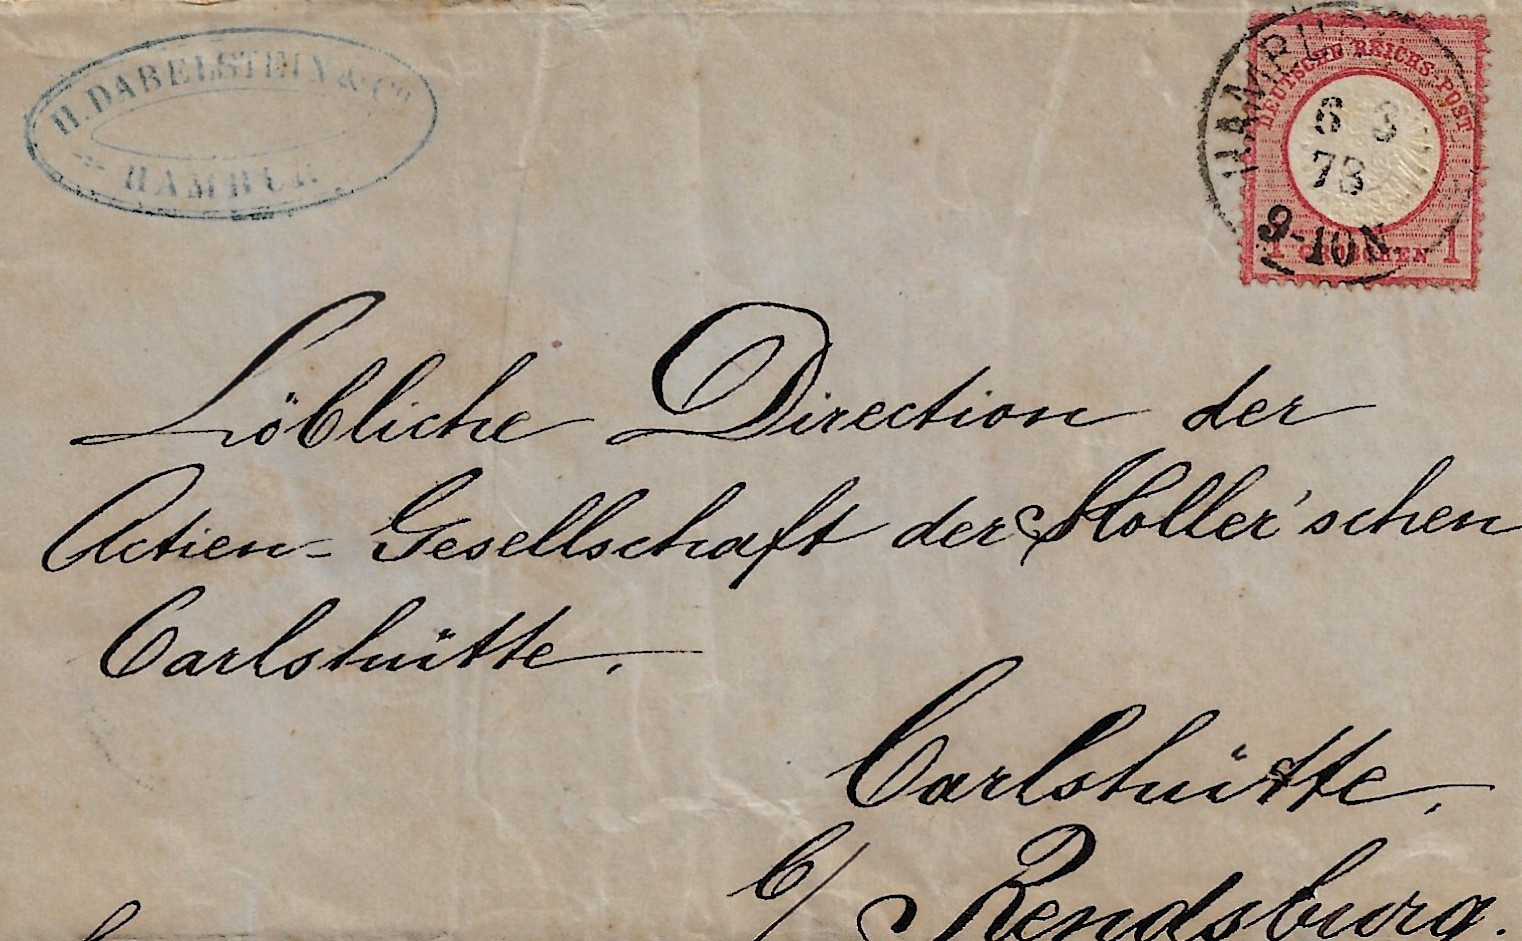 H. DABELSTEIN & Co
HAMBUR
HAMBURG
6 3
73
9-10N.
DEUTSCHE REICHS-POST
1 GROSCHEN 1
Löbliche Direction der
Actien-Gesellschaft der Holler'schen
Carlshütte.
Carlshütte,
b/ Rendsburg.